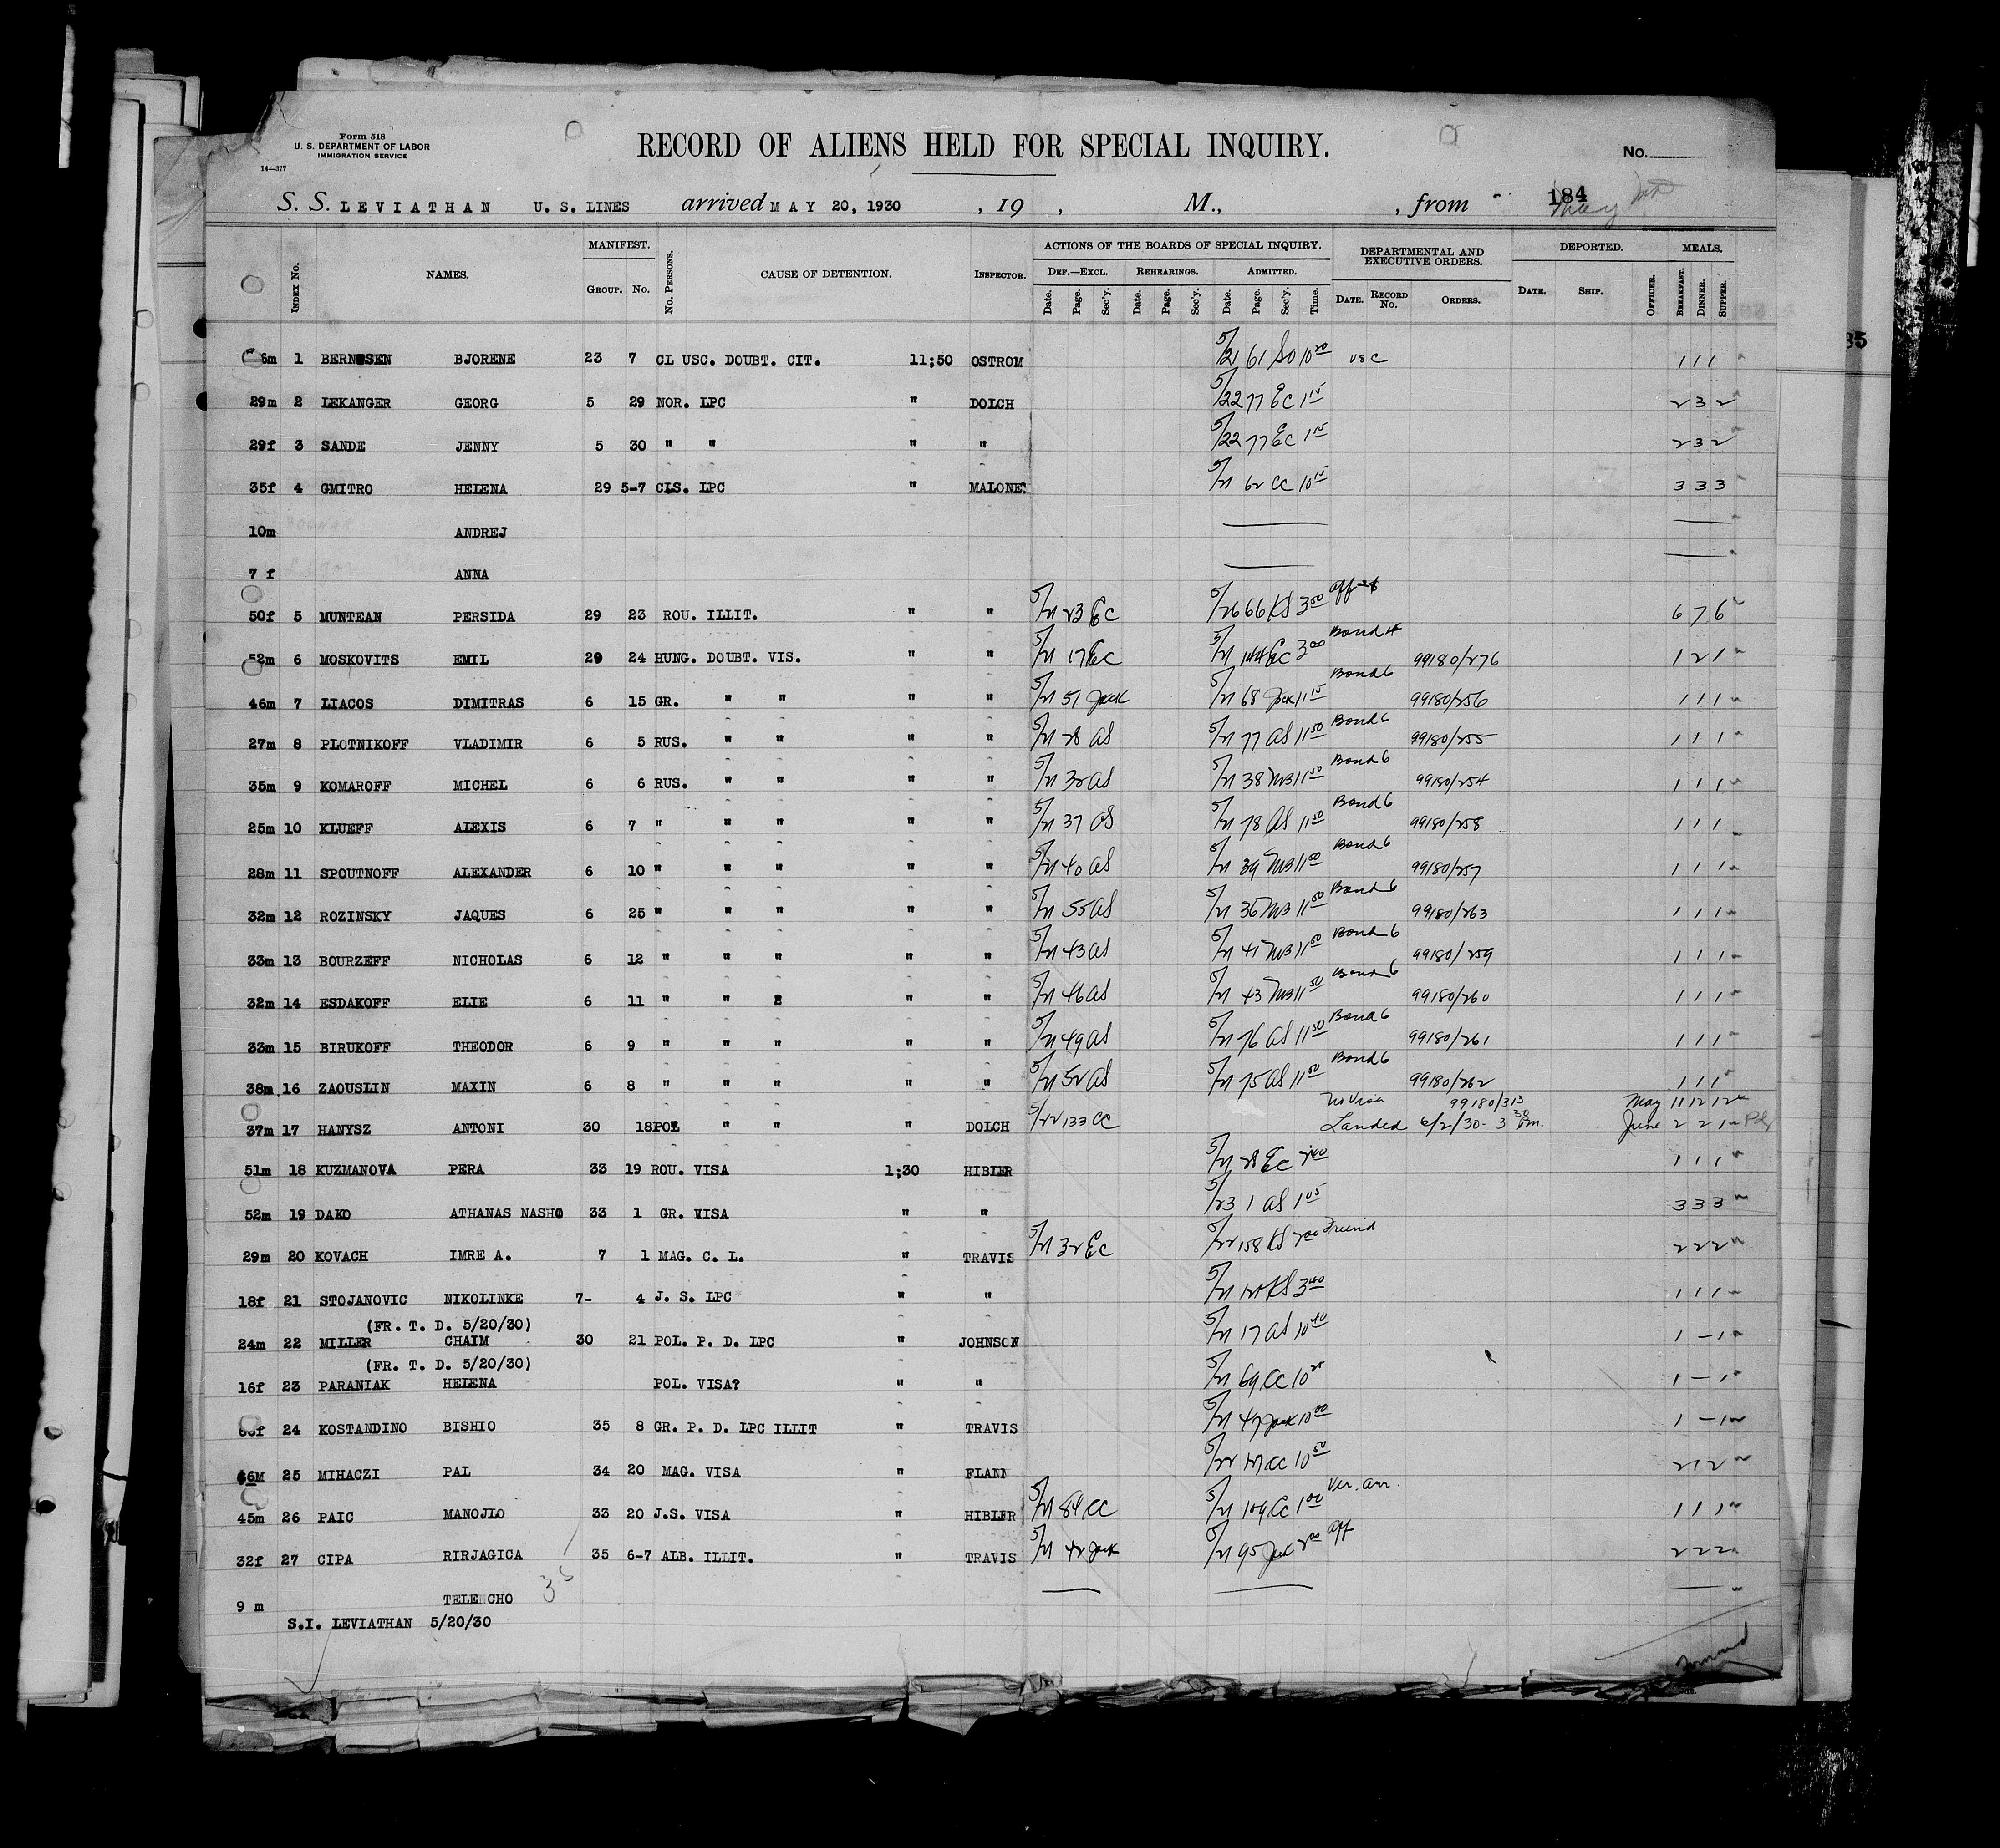 Form 518
U. S. DEPARTMENT OF LABOR
IMMIGRATION SERVICE
14—377
RECORD OF ALIENS HELD FOR SPECIAL INQUIRY.
No.
S. S. LEVIATHAN U. S. LINES arrived MAY 20, 1930 , 19 , M., , from 184
MANIFEST. ACTIONS OF THE BOARDS OF SPECIAL INQUIRY. DEPARTMENTAL AND EXECUTIVE ORDERS. DEPORTED. MEALS.
INDEX No. NAMES. GROUP. No. No. PERSONS. CAUSE OF DETENTION. INSPECTOR. DEF.—EXCL. REHEARINGS. ADMITTED.
Date. Page. Sec'y. Date. Page. Sec'y. Date. Page. Sec'y. Time. DATE. RECORD No. ORDERS. DATE. SHIP. OFFICER. BREAKFAST. DINNER. SUPPER.
1 BERNTSEN BJORENE 23 7 CL USC. DOUBT. CIT. 11;50 OSTROM 5/21 61 SO 10 20 USC 1 1 1
29m 2 LEKANGER GEORG 5 29 NOR. LPC " DOLCH 5/22 77 EC 1 15 2 3 2
29f 3 SANDE JENNY 5 30 " " " " 5/22 77 EC 1 15 2 3 2
35f 4 GMITRO HELENA 29 5-7 CLS. LPC " MALONE 5/21 62 CC 10 15 3 3 3
10m ANDREJ
7 f ANNA
50f 5 MUNTEAN PERSIDA 29 23 ROU. ILLIT. " " 5/21 23 EC 5/26 66 KS 3 50 Aff 6 7 6
52m 6 MOSKOVITS EMIL 29 24 HUNG. DOUBT. VIS. " " 5/21 17 EC 5/21 144 EC 3 00 Bond 99180/276 1 2 1
46m 7 LIACOS DIMITRAS 6 15 GR. " " " " 5/21 51 Jack 5/21 68 Jack 11 15 Bond 6 99180/256 1 1 1
27m 8 PLOTNIKOFF VLADIMIR 6 5 RUS. " " " " 5/21 28 AS 5/21 77 AS 11 50 Bond 6 99180/255 1 1 1
35m 9 KOMAROFF MICHEL 6 6 RUS. " " " " 5/21 32 AS 5/21 38 MB 11 50 Bond 6 99180/254 1 1 1
25m 10 KLUEFF ALEXIS 6 7 " " " " " 5/21 37 AS 5/21 78 AS 11 50 Bond 6 99180/258 1 1 1
28m 11 SPOUTNOFF ALEXANDER 6 10 " " " " " 5/21 40 AS 5/21 39 MB 11 50 Bond 6 99180/257 1 1 1
32m 12 ROZINSKY JAQUES 6 25 " " " " " 5/21 55 AS 5/21 36 MB 11 50 Bond 6 99180/263 1 1 1
33m 13 BOURZEFF NICHOLAS 6 12 " " " " " 5/21 43 AS 5/21 41 MB 11 50 Bond 6 99180/259 1 1 1
32m 14 ESDAKOFF ELIE 6 11 " " " " 5/21 46 AS 5/21 43 MB 11 50 Bond 6 99180/260 1 1 1
33m 15 BIRUKOFF THEODOR 6 9 " " " " " 5/21 49 AS 5/21 76 AS 11 50 Bond 6 99180/261 1 1 1
38m 16 ZAOUSLIN MAXIN 6 8 " " " " " 5/21 52 AS 5/21 75 AS 11 50 Bond 6 99180/262 1 1 1
No Visa 99180/313 May 11 12 12
37m 17 HANYSZ ANTONI 30 18 POL " " " DOLCH 5/22 133 CC Landed 6/2/30 - 3 30 Pm. June 2 2 1
51m 18 KUZMANOVA PERA 33 19 ROU. VISA 1;30 HIBLER 5/21 28 EC 2 40 1 1 1
52m 19 DAKO ATHANAS NASHO 33 1 GR. VISA " " 5/23 1 AS 1 05 3 3 3
29m 20 KOVACH IMRE A. 7 1 MAG. C. L. " TRAVIS 5/21 32 EC 5/22 158 KS 2 00 Friend 2 2 2
18f 21 STOJANOVIC NIKOLINKE 7- 4 J. S. LPC " " 5/21 121 KS 3 40 1 1 1
(FR. T. D. 5/20/30)
24m 22 MILLER CHAIM 30 21 POL. P. D. LPC " JOHNSON 5/21 17 AS 10 40 1 - 1
(FR. T. D. 5/20/30)
16f 23 PARANIAK HELENA POL. VISA? " " 5/21 69 CC 10 25 1 - 1
24 KOSTANDINO BISHIO 35 8 GR. P. D. LPC ILLIT " TRAVIS 5/21 47 Jack 10 00 1 - 1
46M 25 MIHACZI PAL 34 20 MAG. VISA " FLANN 5/22 CC 10 50 2 1 2
45m 26 PAIC MANOJLO 33 20 J.S. VISA " HIBLER 5/21 84 CC 5/21 109 CC 1 00 Ver. arr. 1 1 1
32f 27 CIPA RIRJAGICA 35 6-7 ALB. ILLIT. " TRAVIS 5/21 42 Jack 5/21 95 Jack 2 00 Aff 2 2 2
9 m TELENCHO
S.I. LEVIATHAN 5/20/30